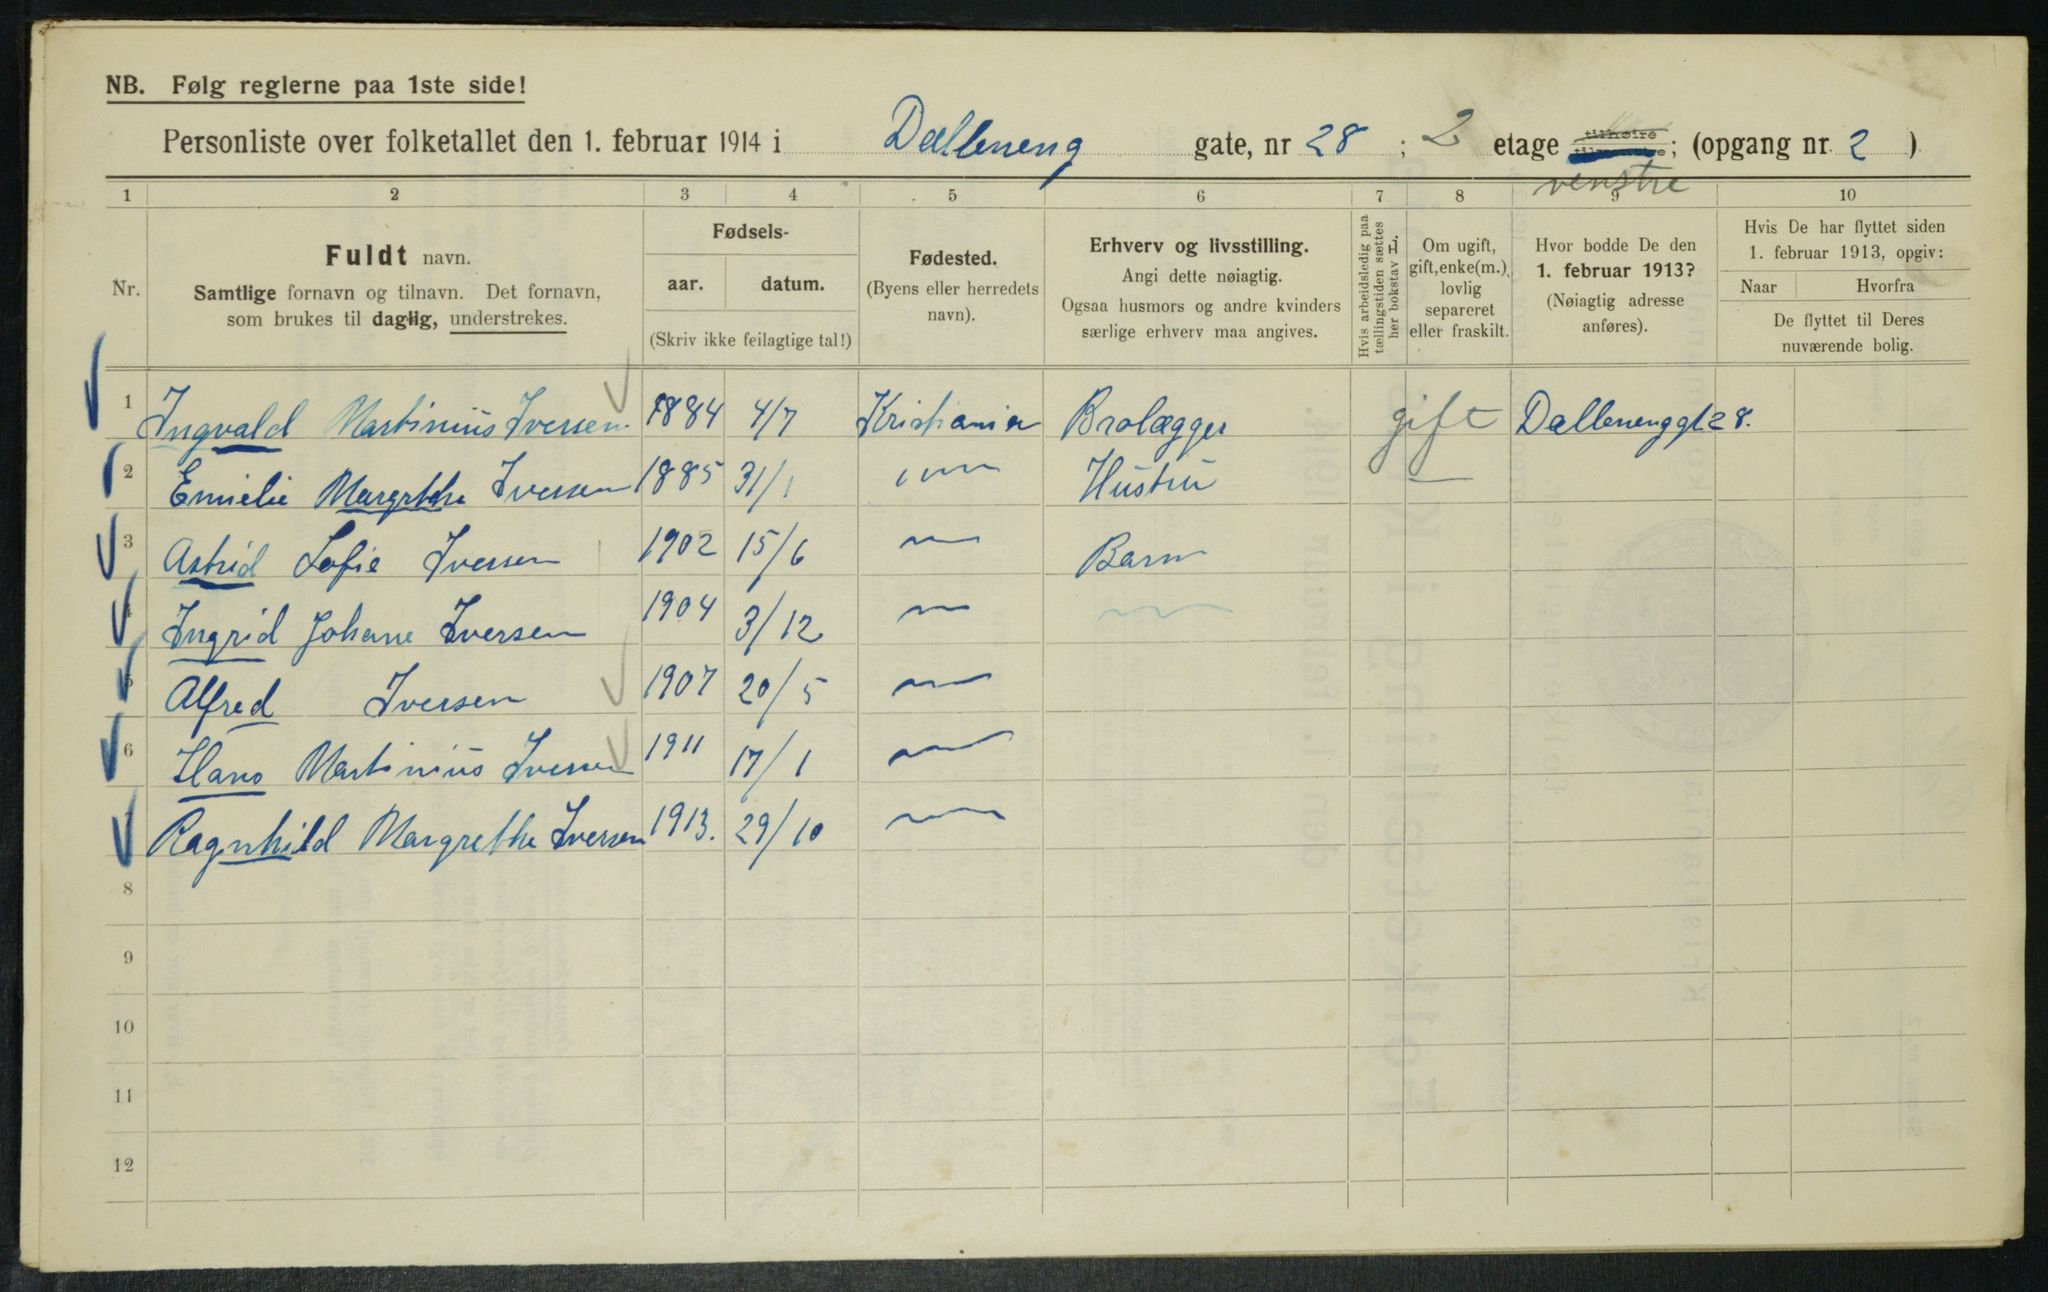 NB. Følg reglerne paa 1ste side!
Personliste over folketallet den 1. februar 1914 i Dælleneng gate, nr 28 ; 2 etage tilhøire tilvenstre; (opgang nr. 2 )
venstre
1 2 3 4 5 6 7 8 9 10
Nr.
Fuldt navn.
Samtlige fornavn og tilnavn. Det fornavn,
som brukes til daglig, understrekes.
Fødsels-
aar. datum.
(Skriv ikke feilagtige tal!)
Fødested.
(Byens eller herredets
navn).
Erhverv og livsstilling.
Angi dette nøiagtig.
Ogsaa husmors og andre kvinders
særlige erhverv maa angives.
Hvis arbeidsledig paa
tællingstiden sættes
her bokstav L.
Om ugift,
gift, enke(m.),
lovlig
separeret
eller fraskilt.
Hvor bodde De den
1. februar 1913?
(Nøiagtig adresse
anføres).
Hvis De har flyttet siden
1. februar 1913, opgiv:
Naar Hvorfra
De flyttet til Deres
nuværende bolig.
1 Ingvald Martinius Iversen 1884 4/7 Kristiania Brolægger gift Dællenenggt 28.
2 Emielie Margrethe Iversen 1885 31/1 Hustru
3 Astrid Sofie Iversen 1902 15/6 Barn
4 Ingrid Johane Iversen 1904 3/12
5 Alfred Iversen 1907 20/5
6 Hans Martinius Iversen 1911 17/1
7 Ragnhild Margrethe Iversen 1913. 29/10
8
9
10
11
12